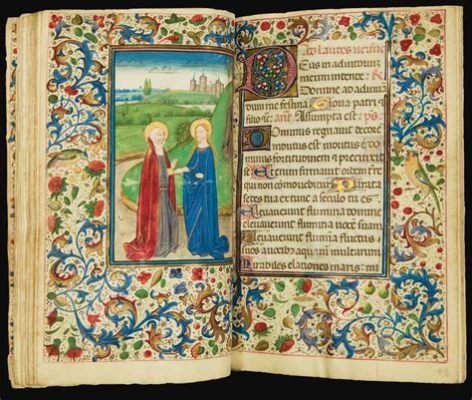 Ad laudes
Deus in adiutoriū
meum intende : R
Domine ad adiuuā
dum me festina Gloria patri et
filio Assumpta est : ps
Dominus regnauit decorē
indutus est indutus est do
minus fortitudinem et precinxit
se Etenim firmauit orbem terre
qui non cōmouebitur Parata
sedes tua extunc a seculo tu es
Eleuauerunt flumina domine
eleuauerunt flumina uocē suam
Eleuauerunt flumina fluctus
suos a uocibus aquarū multarum
Mirabiles elationes maris mi